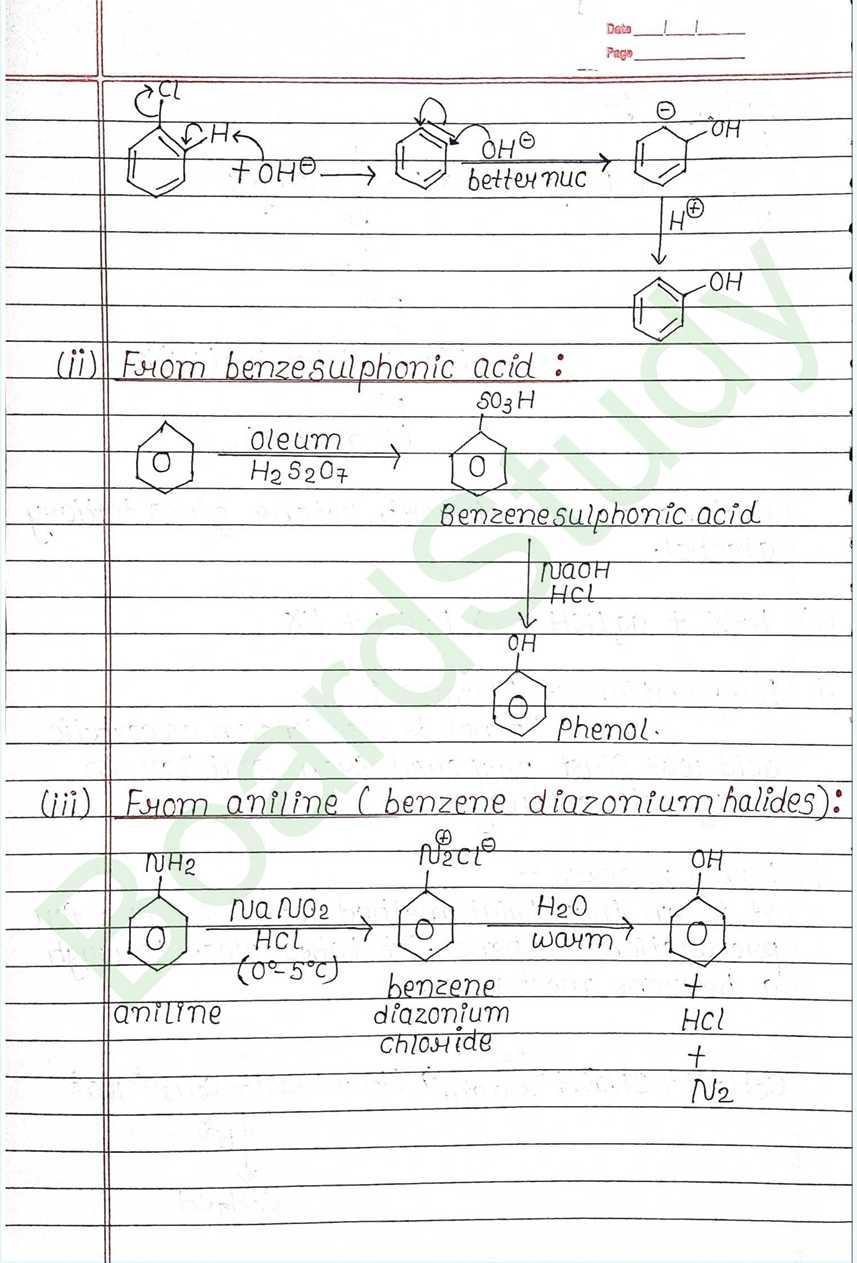 Date __/__/__
Page
Cl
H
+ OH⊖
OH⊖
better nuc
⊖
OH
H⊕
OH
(ii) From benzesulphonic acid :
SO3H
oleum
H2S2O7
Benzenesulphonic acid
NaOH
HCl
OH
Phenol.
(iii) From aniline ( benzene diazonium halides):
NH2
⊕
N2Cl⊖
OH
NaNO2
HCl
(0°-5°C)
H2O
warm
aniline
benzene
diazonium
chloride
+
HCl
+
N2
BoardStudy